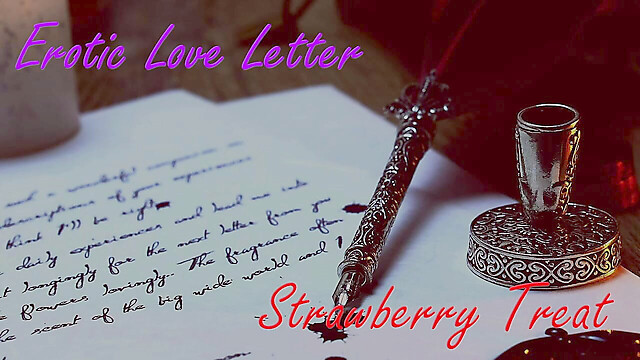 Erotic Love Letter
and a wonderful
descriptions of your experiences
think I'll be right
daily experiences and lead me into
longingly for the next letter from you
flowers lovingly. The fragrance often
the scent of the big wide world and I
Strawberry Treat